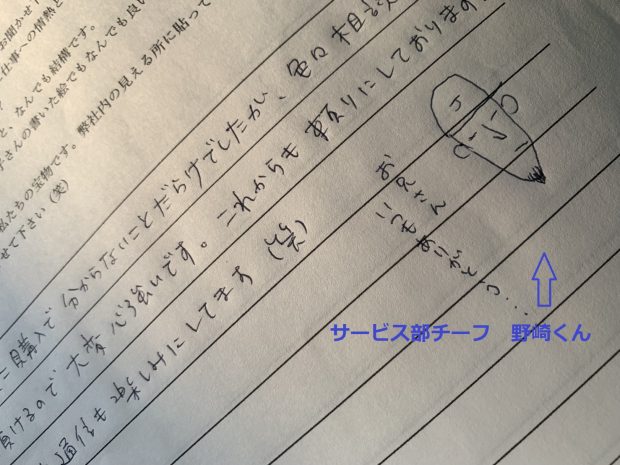 お聞かせ
仕事への情熱と
と、なんでも結構です。
子さんの書いた絵でもなんでも良い
私たちの宝物です。弊社内の見える所に貼って
せて下さい（笑）
購入で分からないことだらけでしたが、色々相談
頂けるので大変心強いです。これからも頼りにしております
通信も楽しみにしてます（笑）
いつもありがとう....
サービス部チーフ　野崎くん